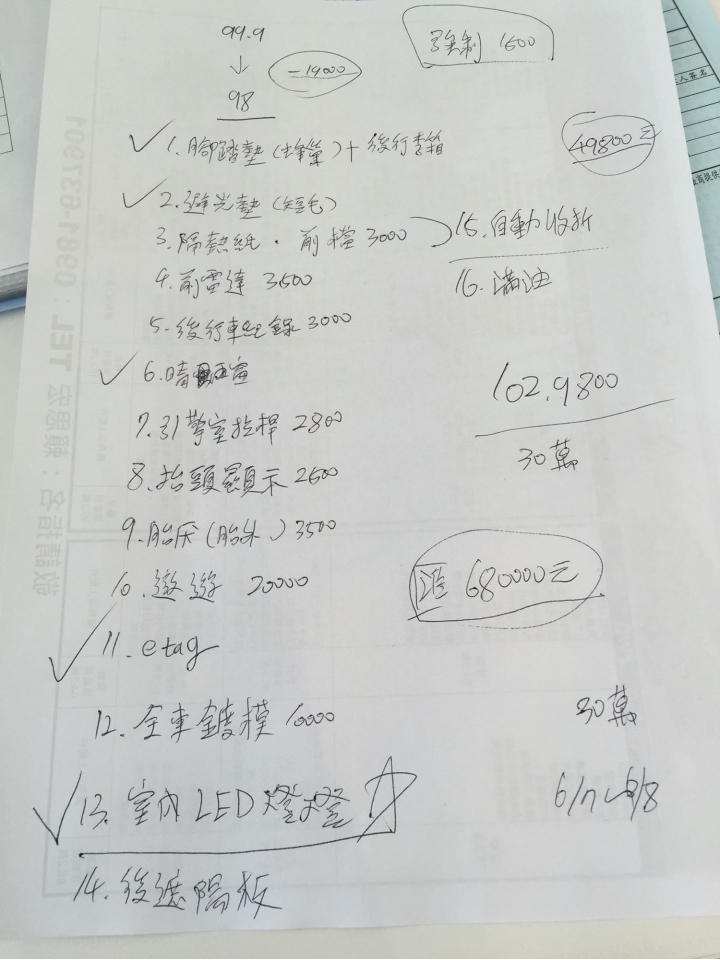 99.9
↓
98
-19000
強制 1600
49800元
1. 腳踏墊(蜂巢)+後行李箱
2. 避光墊(短毛)
3. 隔熱紙.前檔 3000
4. 前雷達 3500
5. 後行車紀錄 3000
6. 晴雨窗
7. 引擎室拉桿 2800
8. 抬頭顯示 2600
9. 胎压(胎外) 3500
10. 遨遊 20000
11. etag
12. 全車鍍模 10000
13. 室內LED燈
14. 後遮隔板
15. 自動收折
16. 滿油
102.9800
30萬
匯 680000元
30萬
TEL: 0981-637901